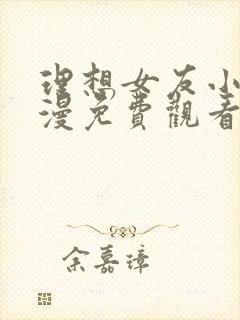 理想女友小
漫免費觀看
余嘉璋